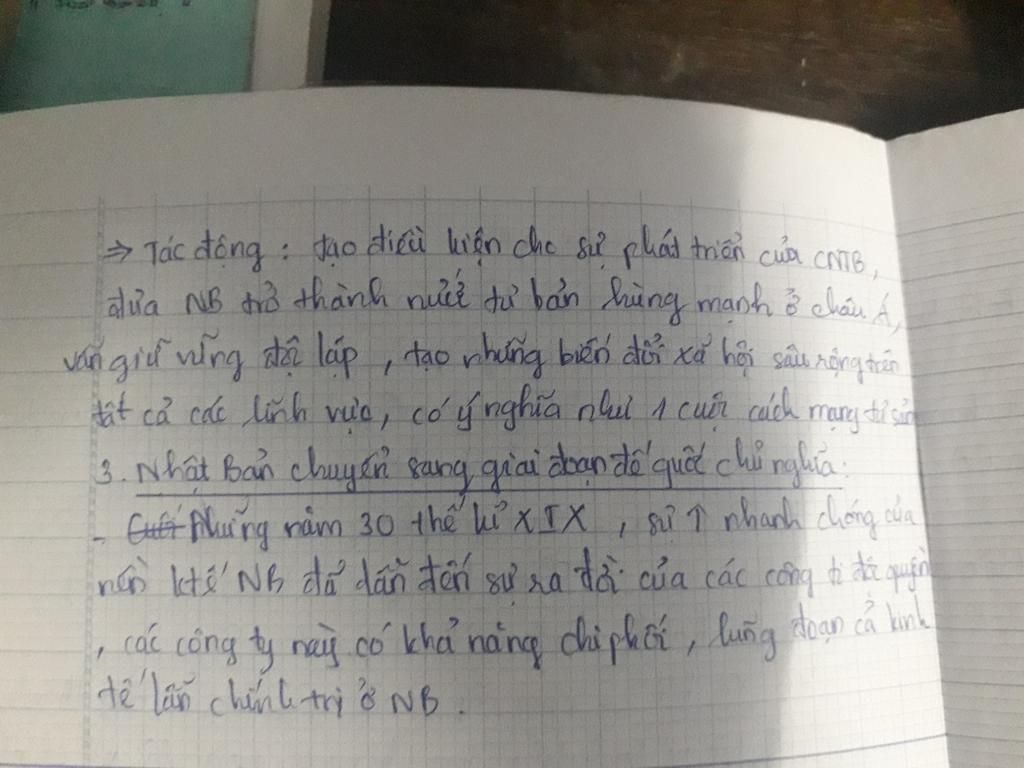 ⇒ Tác động : tạo điều kiện cho sự phát triển của CNTB,
đưa NB trở thành nước tư bản hùng mạnh ở châu Á,
vẫn giữ vững độc lập , tạo những biến đổi xã hội sâu rộng trên
tất cả các lĩnh vực, có ý nghĩa như 1 cuộc cách mạng tư sản
3. Nhật Bản chuyển sang giai đoạn đế quốc chủ nghĩa:
- Cuối Những năm 30 thế kỉ XIX , sự ↑ nhanh chóng của
nền ktế NB đã dẫn đến sự ra đời của các công ti độc quyền
, các công ty này có khả năng chi phối , lũng đoạn cả kinh
tế lẫn chính trị ở NB .